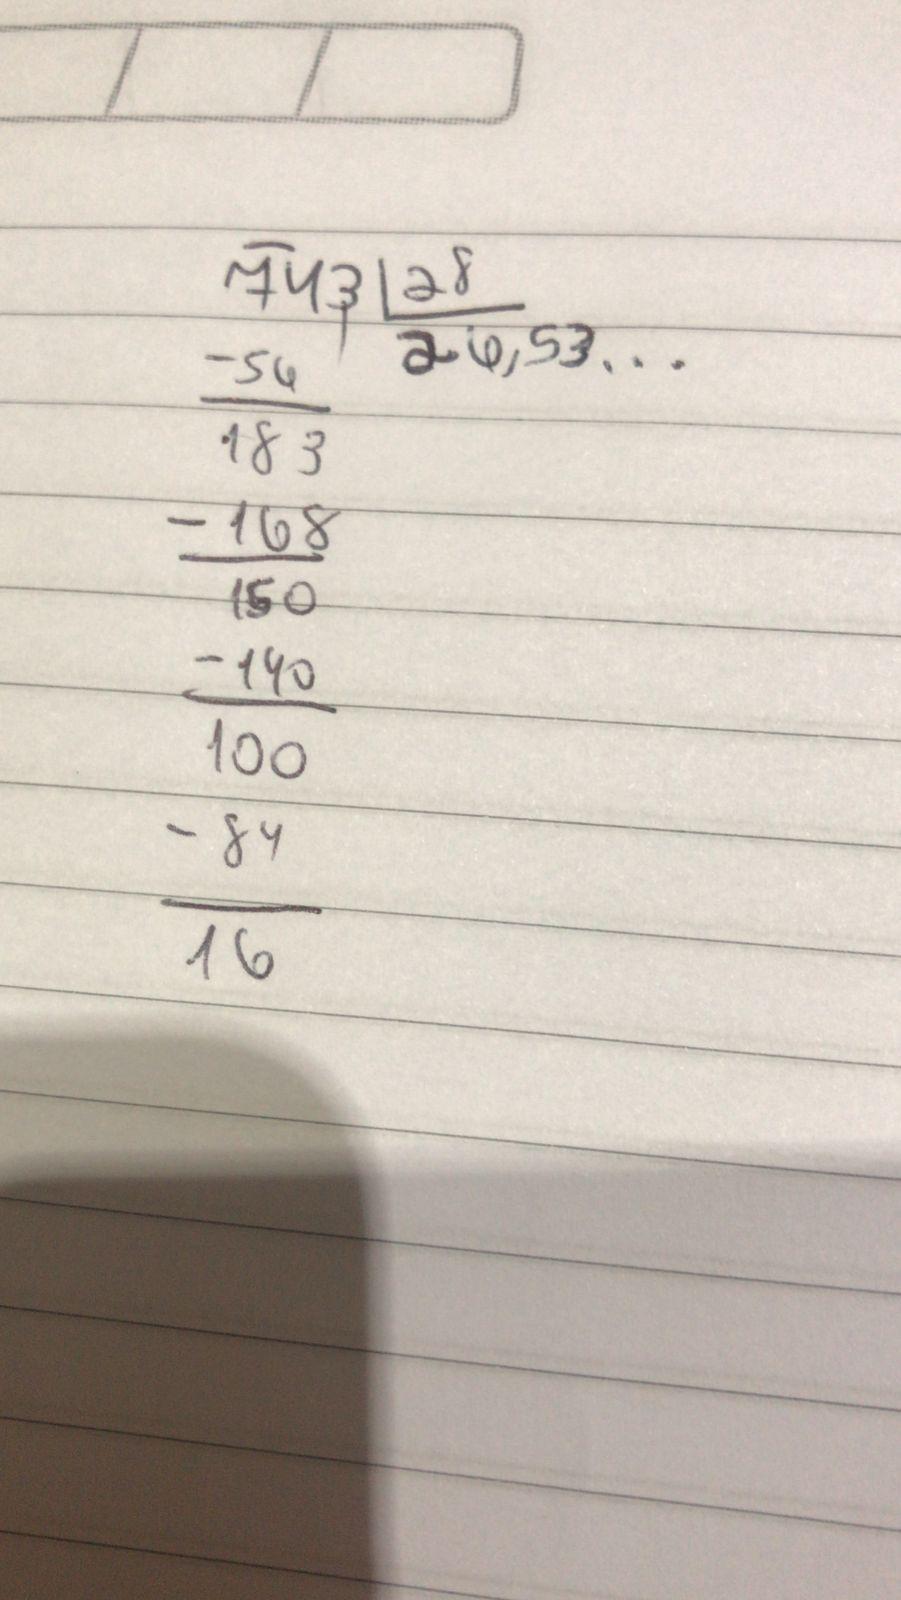 743 28
26,53...
-56
183
-168
150
-140
100
-84
16